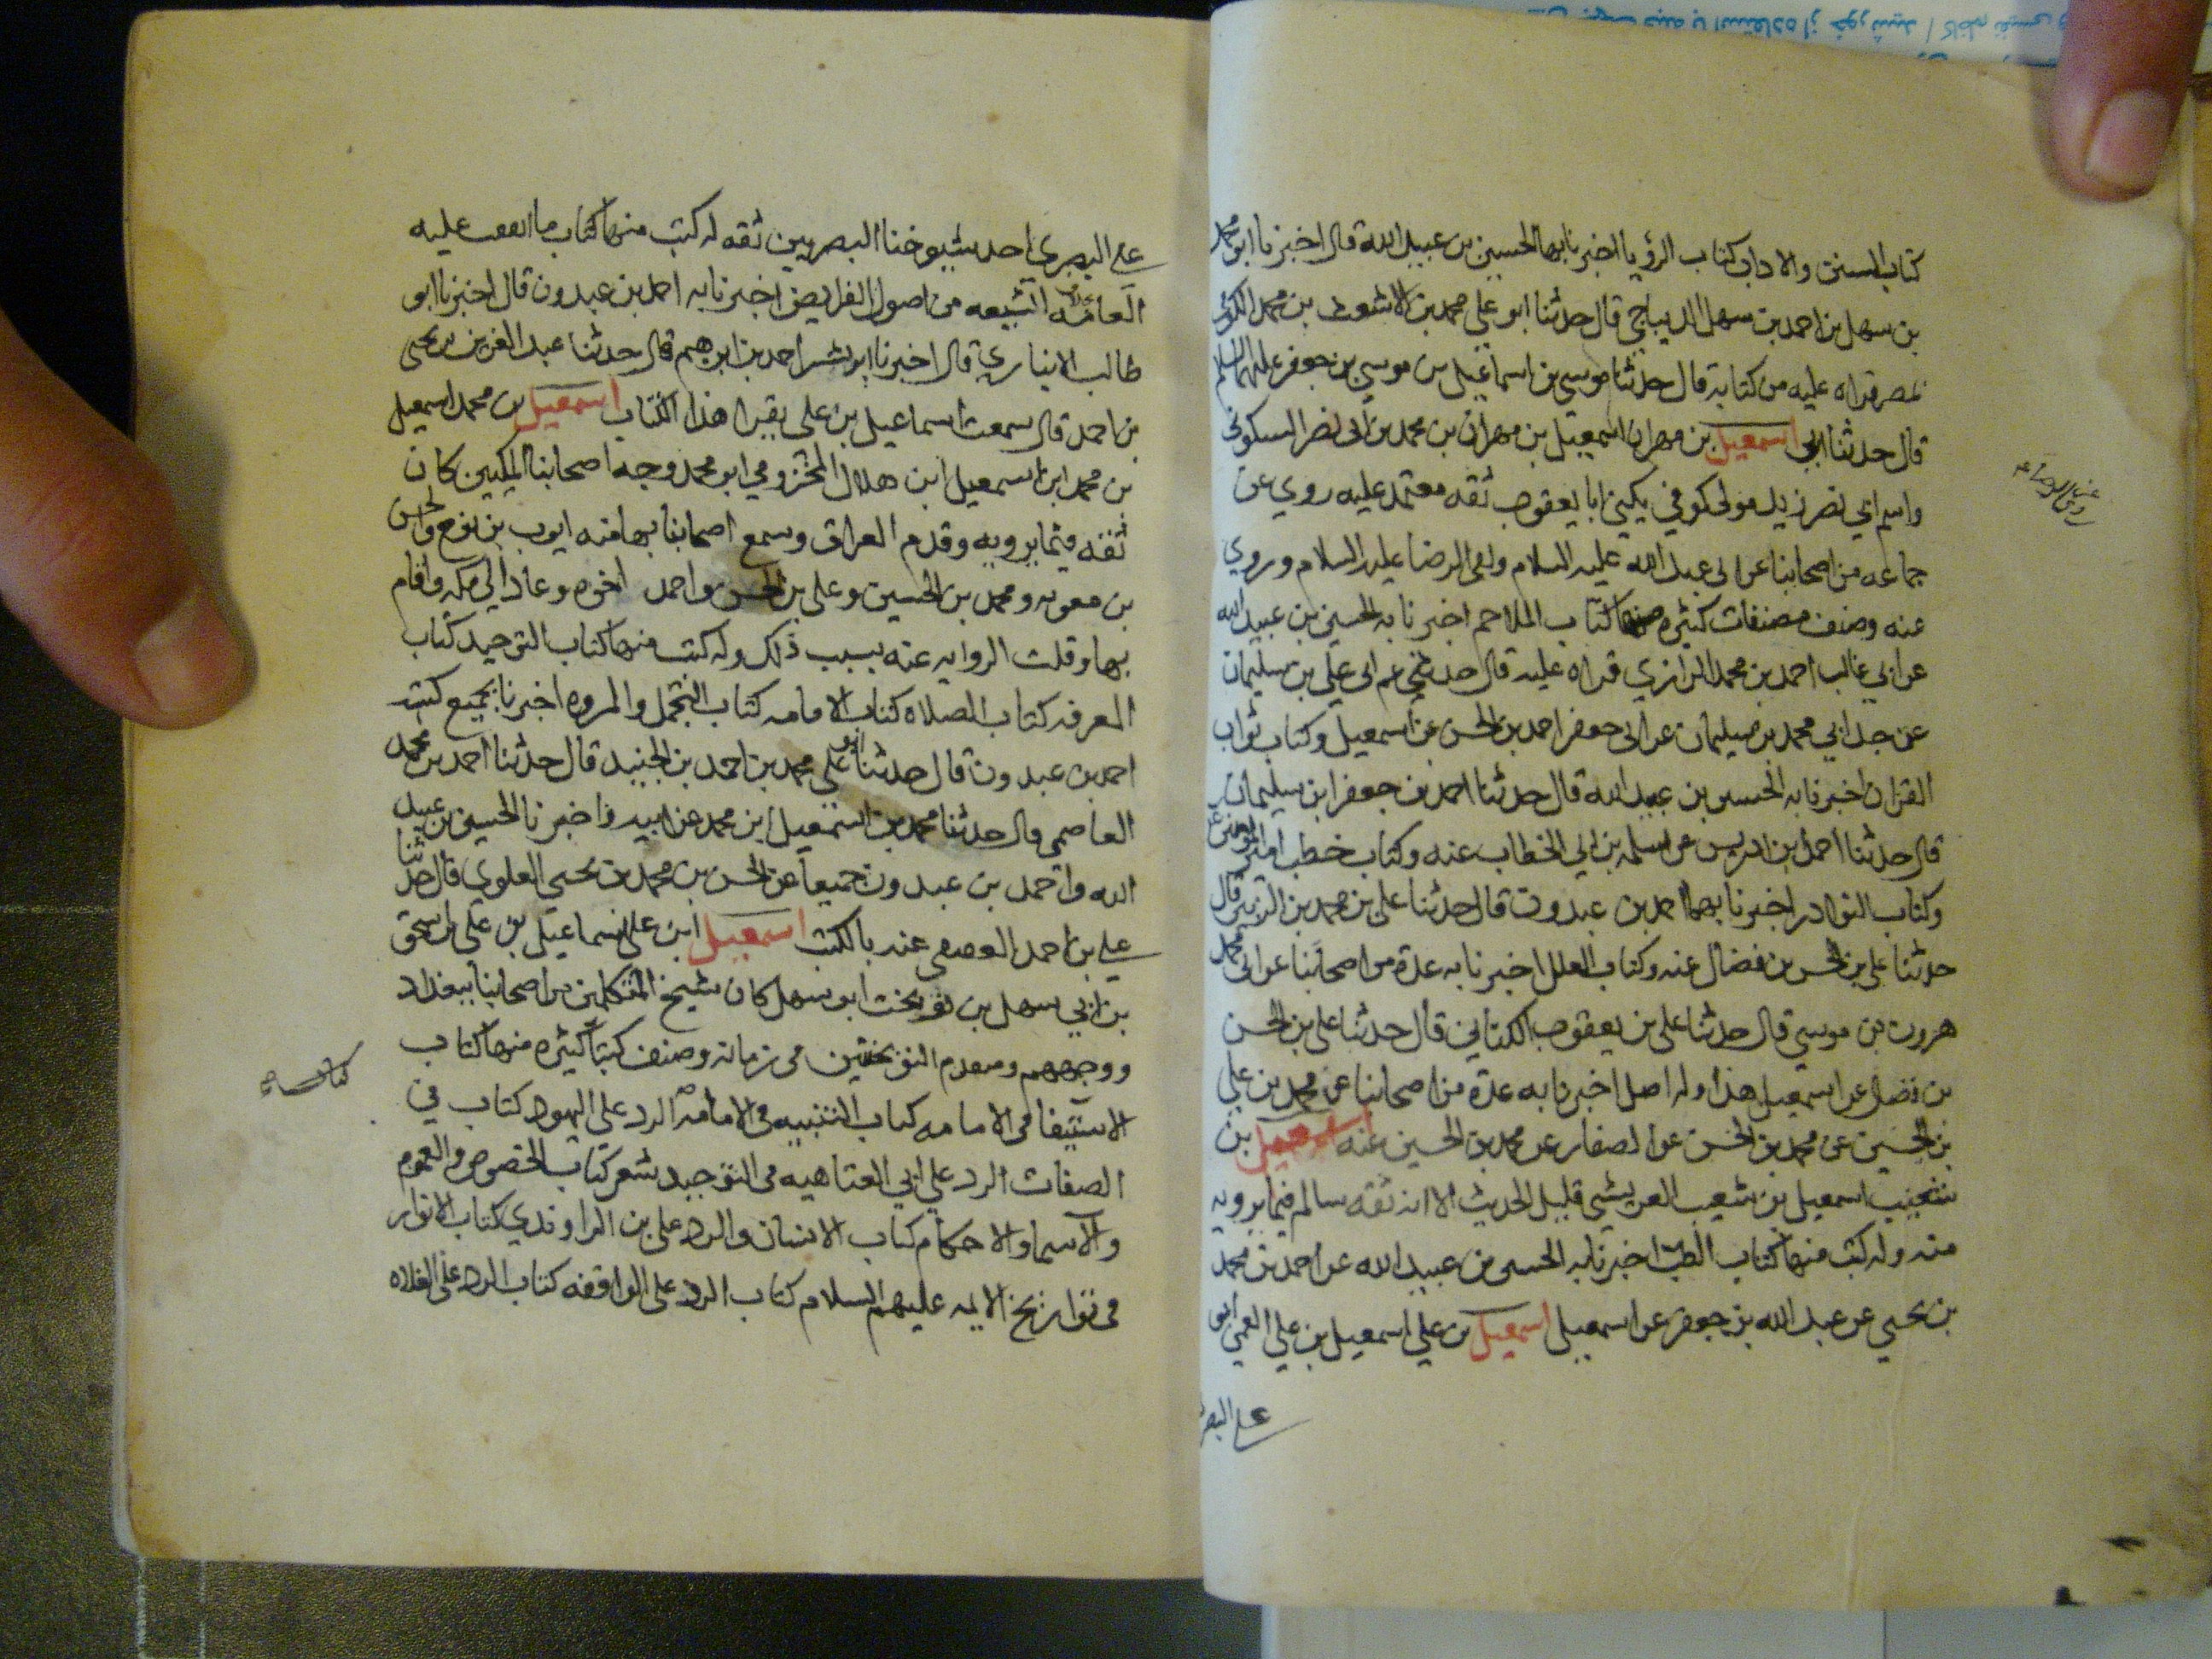 كتاب السنن والاداب كتاب الرؤيا اخبرنا بها الحسين بن عبيد الله قال اخبرنا ابو محمد
بن سهل بن احمد بن سهل الديباجي قال حدثنا ابو علي محمد بن الاشعث بن محمد الكوفي
بمصر قراه عليه من كتابه قال حدثنا موسى بن اسماعيل بن موسى بن جعفر عليهما السلم
قال حدثنا ابي اسمعيل بن مهران اسمعيل بن مهران بن محمد بن ابي نصر السكوني
واسم ابي نصر زيد مولى كوفي يكنى ابا يعقوب ثقه معتمد عليه روي عن
جماعه من اصحابنا عن ابي عبد الله عليه السلام ولقى الرضا عليه السلام وروي
عنه وصنف مصنفات كثيره منها كتاب الملاحم اخبرنا به الحسين بن عبيد الله
عن ابي غالب احمد بن محمد الزرازي قراه عليه قال حدثني عم ابي علي بن سليمان
عن جد ابي محمد بن سليمان عن ابي جعفر احمد بن الحسن عن اسمعيل وكتاب ثواب
القران اخبرنا به الحسين بن عبيد الله قال حدثنا احمد بن جعفر ابن سليمان
قال حدثنا احمد ابن ادريس عن سلمه بن ابي الخطاب عنه وكتاب خطب امير المومنين ع
وكتاب النوادر اخبرنا بهما احمد بن عبدون قال حدثنا علي بن محمد بن الزبير قال
حدثنا علي بن الحسن بن فضال عنه وكتاب العلل اخبرنا به عدة من اصحابنا عن ابي محمد
هرون بن موسى قال حدثنا علي بن يعقوب الكتاني قال حدثنا علي بن الحسن
بن فضل عن اسمعيل هذا وله اصل اخبرنا به عدة من اصحابنا عن محمد بن علي
بن الحسين عن محمد بن الحسن عن الصفار عن محمد بن الحسين عنه اسمعيل بن
شعيب اسمعيل بن شعيب العريشي قليل الحديث الا انه ثقه سالم فيما يرويه
منه وله كتب منها كتاب الطب اخبرنا به الحسين بن عبيد الله عن احمد بن محمد
بن يحيي عن عبد الله بن جعفر عن اسمعيل اسمعيل بن علي اسمعيل بن علي العمي ابو
علي البصر
علي البصري احد شيوخنا البصريين ثقه له كتب منها كتاب ما اتفقت عليه
العامه الشيعه من اصول الفرايض اخبرنا به احمد بن عبدون قال اخبرنا ابو
طالب الانباري قال اخبرنا ابو بشر احمد بن ابرهيم قال حدثنا عبد العزيز بن يحيى
بن احمد قال سمعت اسماعيل بن علي يقرا هذا الكتاب اسمعيل بن محمد اسمعيل
بن محمد ابن اسمعيل ابن هلال المخزومي ابو محمد وجه اصحابنا المكيين كان
ثقه فيما يرويه وقدم العراق وسمع اصحابنا بها منه ايوب بن نوح والحسن
بن معويه ومحمد بن الحسين وعلي بن الحسن واحمد اخوه وعاد الى مكه واقام
بها وقلت الروايه عنه بسبب ذلك وله كتب منها كتاب التوحيد كتاب
المعرفه كتاب الصلاه كتاب الامامه كتاب التجمل والمروه اخبرنا بجميع كتبه
احمد بن عبدون قال حدثنا ابو علي محمد بن احمد بن الجنيد قال حدثنا احمد بن محمد
العاصمي قال حدثنا محمد بن اسمعيل ابن محمد عن ابيه واخبرنا الحسين بن عبيد
الله واحمد بن عبدون جميعا عن الحسن بن محمد بن يحيى العلوي قال حدثنا
علي بن احمد العقيقي عنه بالكتب اسمعيل ابن علي اسماعيل بن علي بن اسحق
بن ابي سهل بن نوبخت ابو سهل كان شيخ المتكلمين من اصحابنا ببغداد
ووجههم ومتقدم النوبختين في زمانه وصنف كتبا كثيره منها كتاب
الاستيفا في الامامه كتاب التنبيه في الامامه الرد على اليهود كتاب في
الصفات الرد علي ابي العتاهيه في التوحيد شعر كتاب الخصوص والعموم
والاسما والاحكام كتاب الانسان والرد على بن الراوندي كتاب الانوار
في تواريخ الايمه عليهم السلام كتاب الرد على الواقفه كتاب الرد على الغلاه